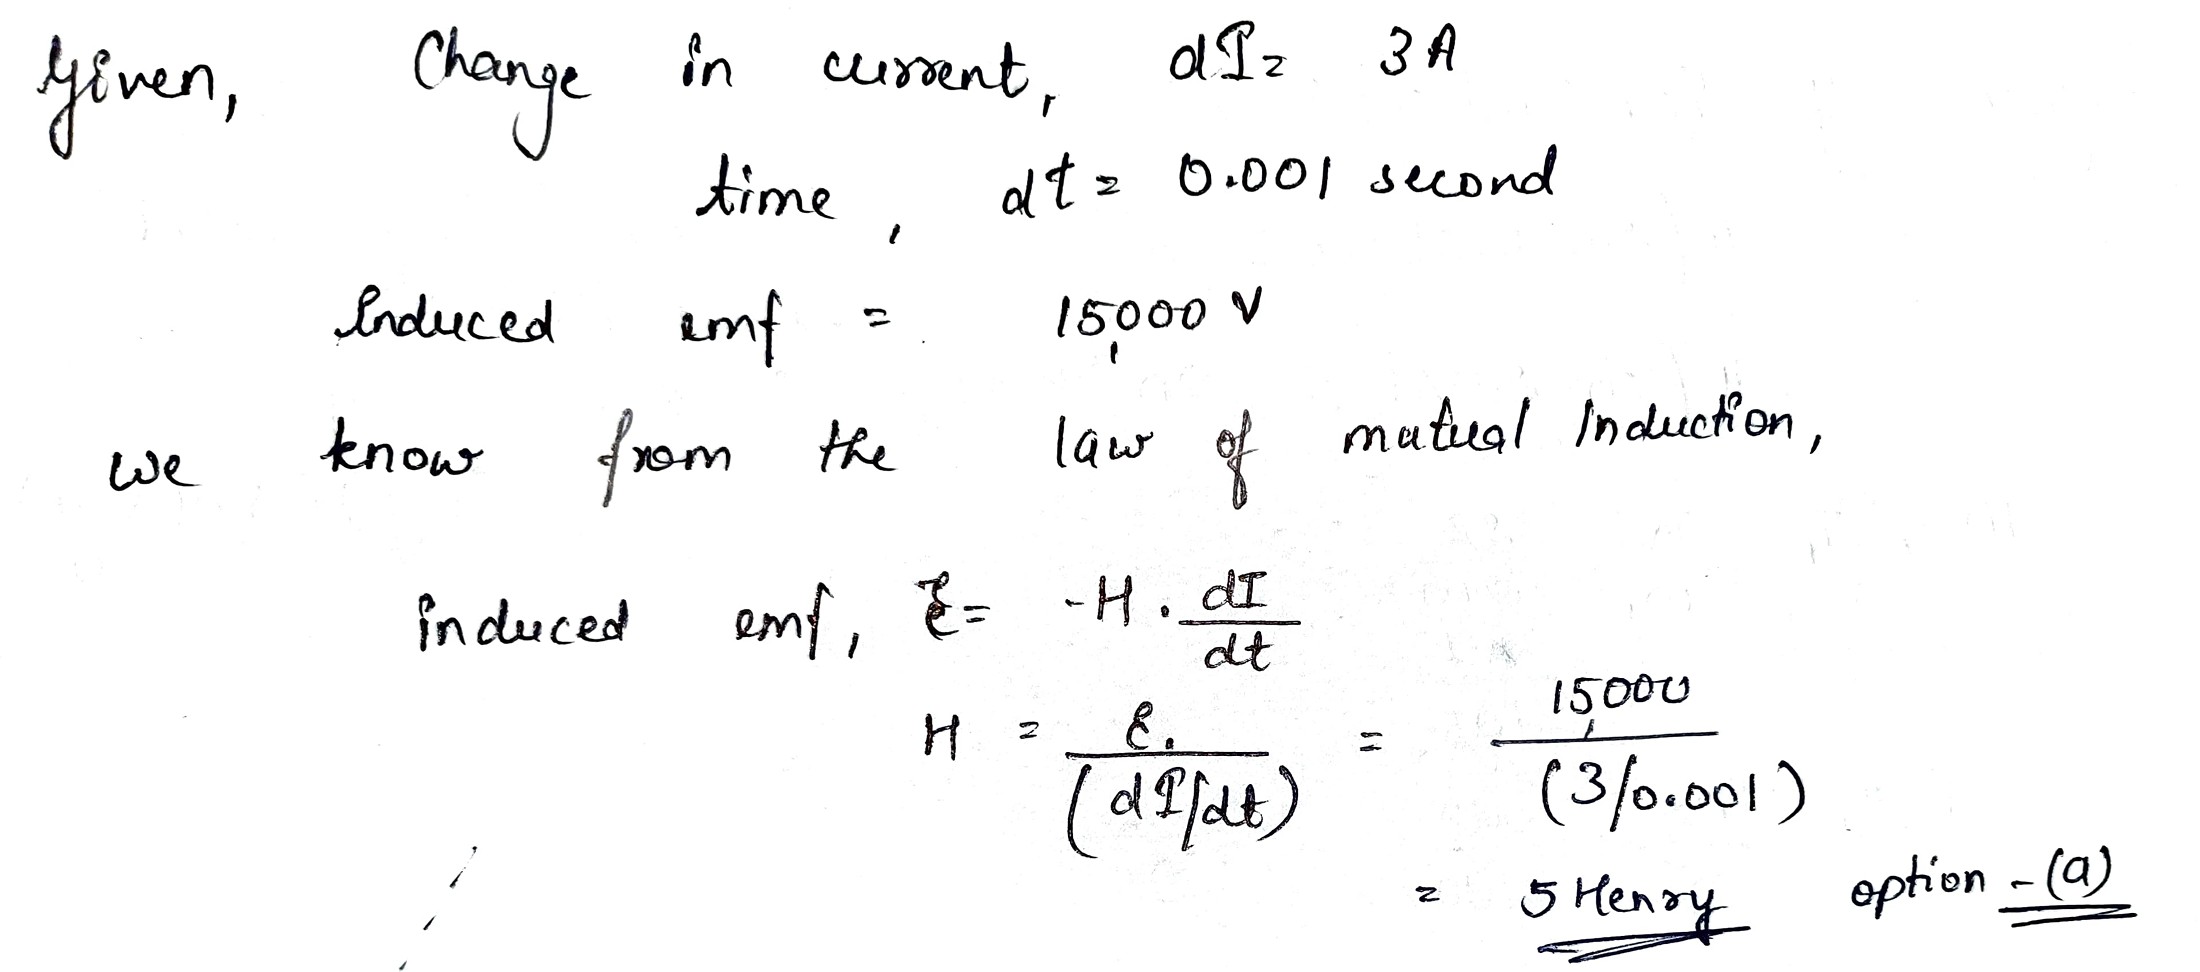 Given, Change in current, dI = 3 A
time, dt = 0.001 second
Induced emf = 15,000 V
we know from the law of mutual Induction,
induced emf, ε = -H . dI/dt
H = ε. / (dI/dt) = 15,000 / (3/0.001)
= 5 Henry option - (a)